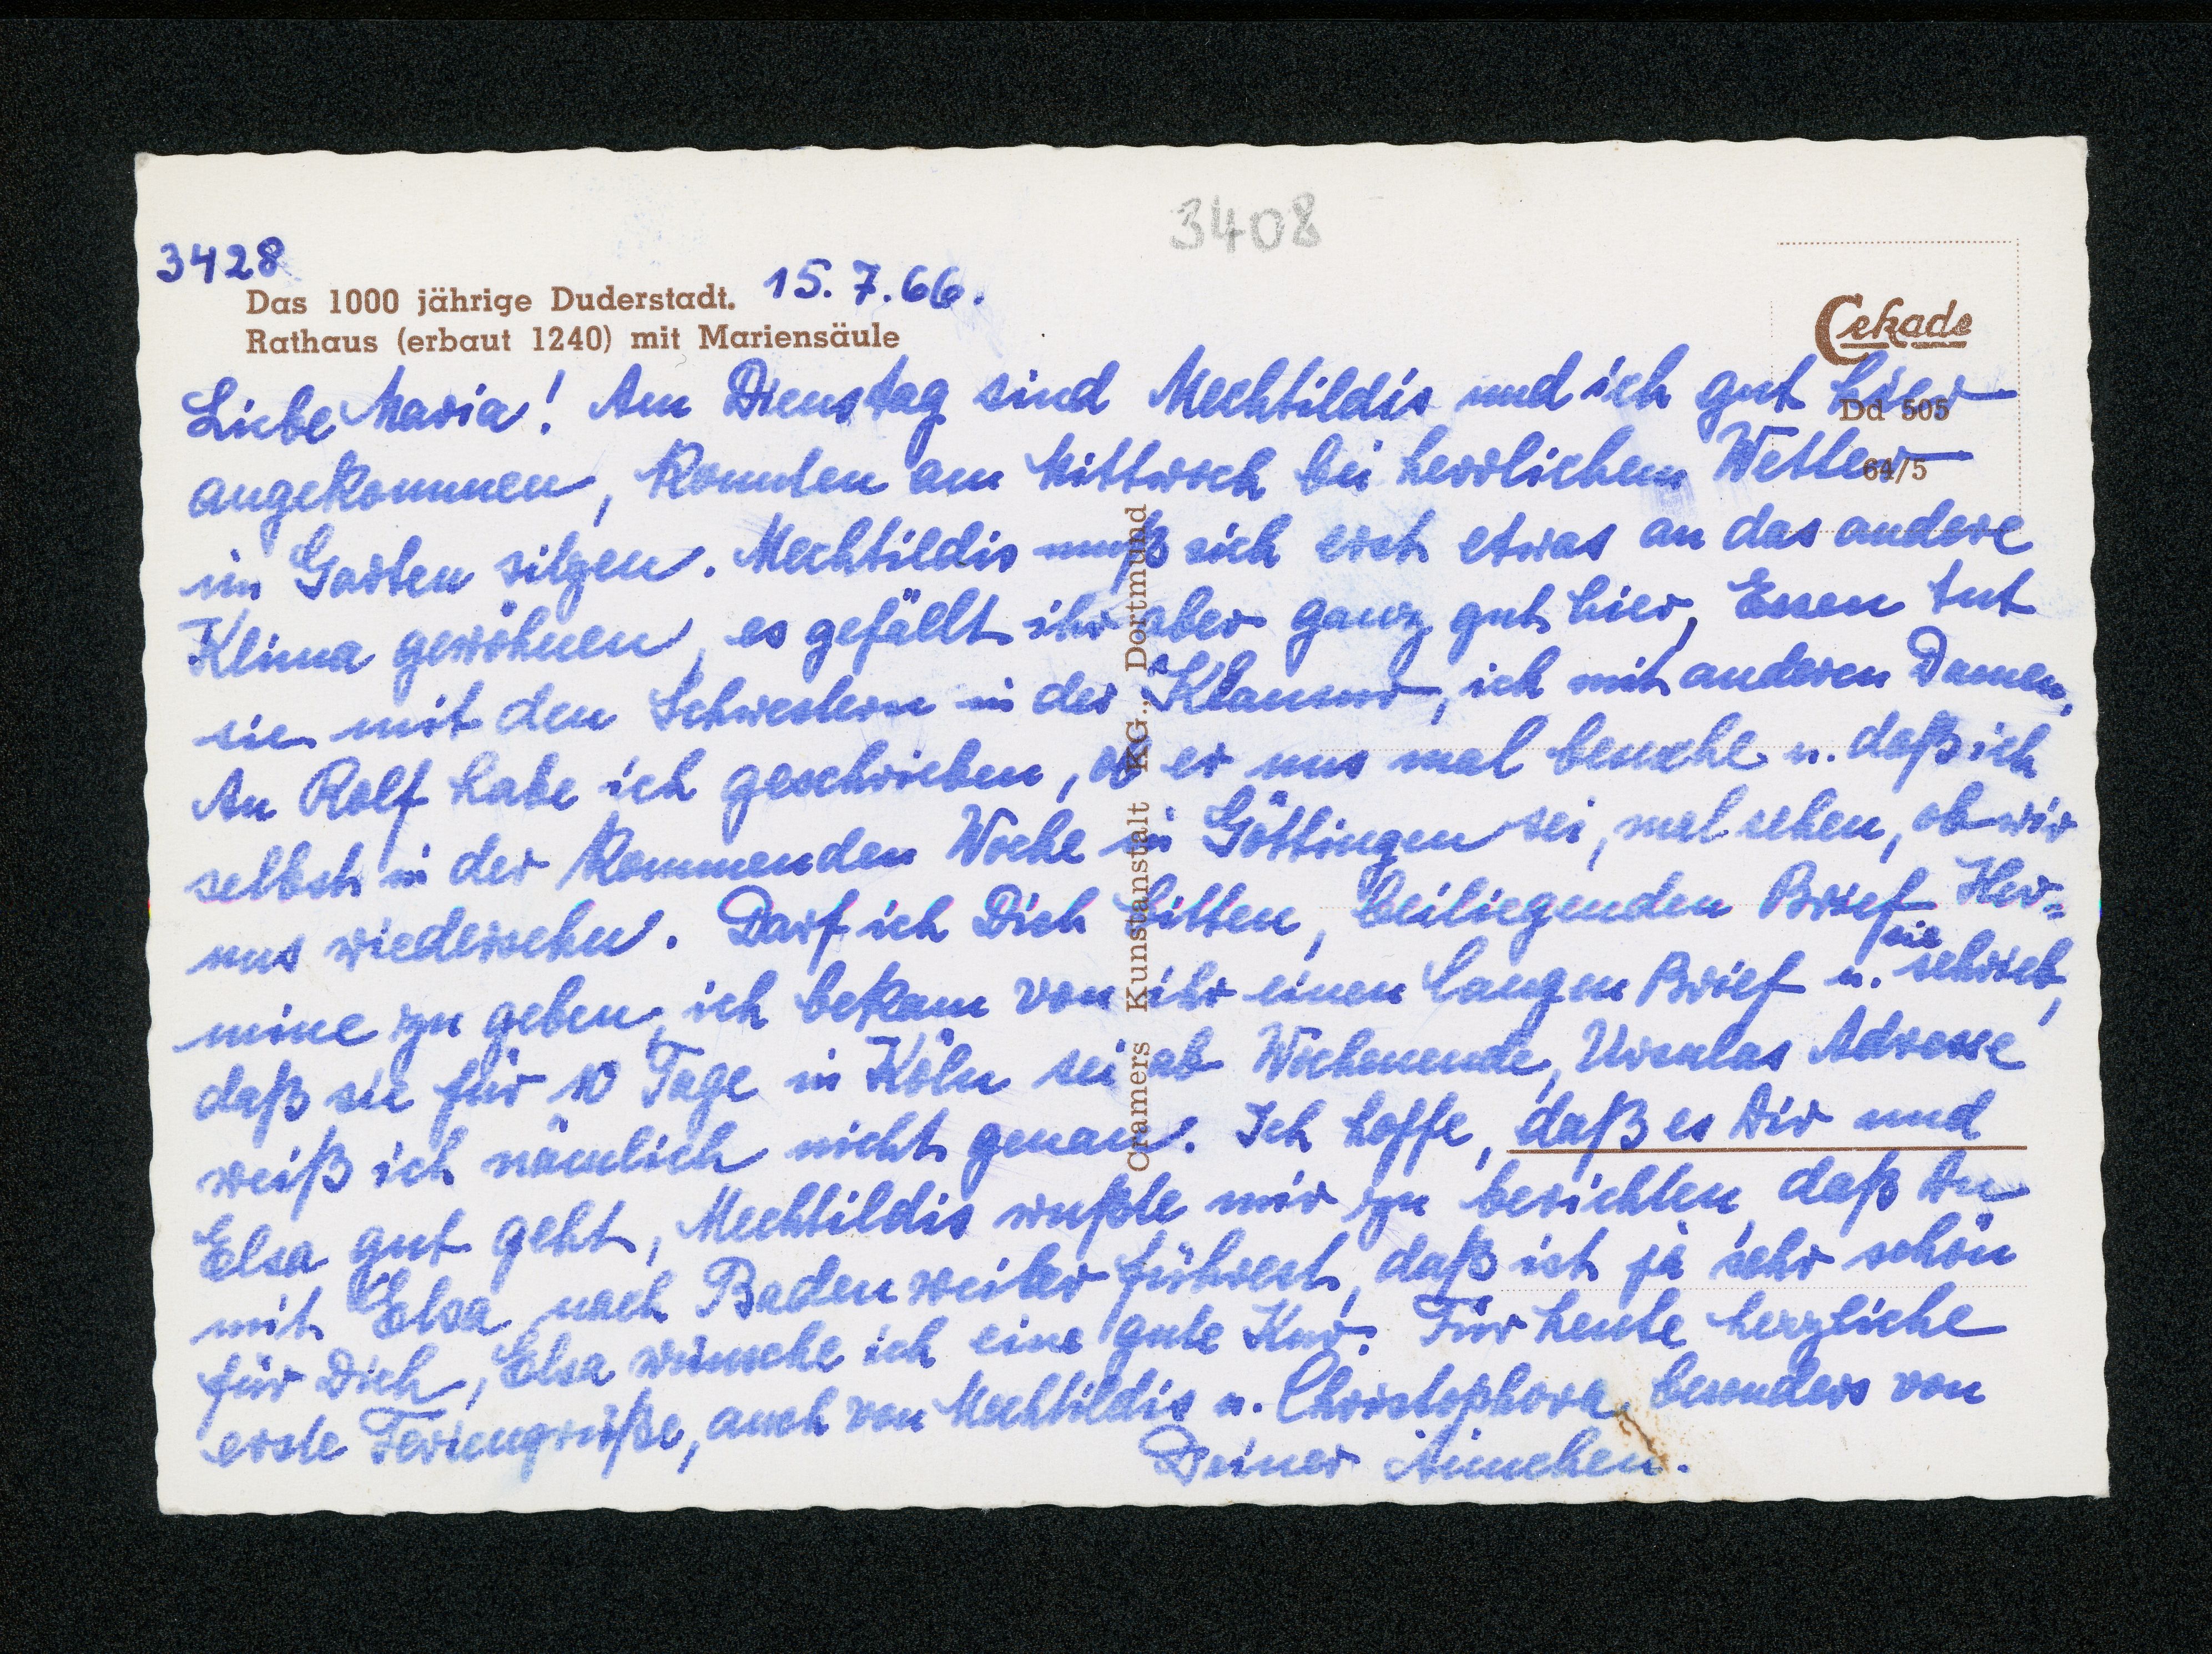 3408
3428
Das 1000 jährige Duderstadt. 15.7.66.
Rathaus (erbaut 1240) mit Mariensäule
Cekade
Dd 505
64/5
Cramers Kunstanstalt KG., Dortmund
Liebe Maria! Am Dienstag sind Mechtildis und ich gut hier
angekommen, konnten am Mittwoch bei herrlichem Wetter
im Garten sitzen. Mechtildis muß sich erst etwas an das andere
Klima gewöhnen, es gefällt ihr aber ganz gut hier, Essen tut
sie mit den Schwestern in der Klausur, ich mit anderen Damen.
An Rolf habe ich geschrieben, ob er uns mal besuche u. daß ich
selbst in der kommenden Woche in Göttingen sei, mal sehen, ob wir
uns wiedersehn. Darf ich Dich bitten, beiliegenden Brief Her=
mine zu geben, ich bekam von ihr einen langen Brief u. sie schrieb,
daß sie für 10 Tage in Köln sei ab Wochenende, Ursulas Adresse
weiß ich nämlich nicht genau. Ich hoffe, daß es Dir und
Elsa gut geht, Mechtildis wußte mir zu berichten, daß Du
mit Elsa nach Badenweiler führest, daß ist ja sehr schön
für Dich, Elsa wünsche ich eine gute Kur. Für heute herzliche
erste Feriengrüße, auch von Mechtildis u. Christophora, besonders von
Deiner Ännchen.